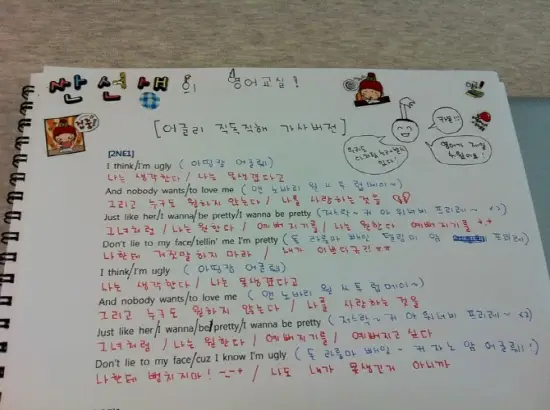 산선생의 영어교실!
[어글리 직독직해 가사버전]
[2NE1]
I think/I'm ugly (아띵캄 어글뤼)
나는 생각한다 / 나는 못생겼다고
And nobody wants/to love me (앤 노바리 원 쓰 투 럽메이~)
그리고 누구도 원하지 않는다 / 나를 사랑하는 것을
Just like her/I wanna/be pretty/I wanna be pretty
그녀처럼 / 나는 원한다 / 예뻐지기를 / 나는 원한다 예뻐지기를
Don't lie to my face/tellin' me I'm pretty
나한테 거짓말 하지 마라 / 내가 이쁘다구
I think/I'm ugly (아띵캄 어글뤼)
나는 생각한다 / 나는 못생겼다고
And nobody wants/to love me (앤 노바리 원 쓰 투 럽메이~)
그리고 누구도 원하지 않는다 / 나를 사랑하는 것을
Just like her/I wanna/be/pretty/I wanna be pretty
그녀처럼 / 나는 원한다 / 예뻐지기를 / 예뻐지고 싶다
Don't lie to my face/cuz I know I'm ugly
나한테 뻥치지마! / 나도 내가 못생긴거 아니까